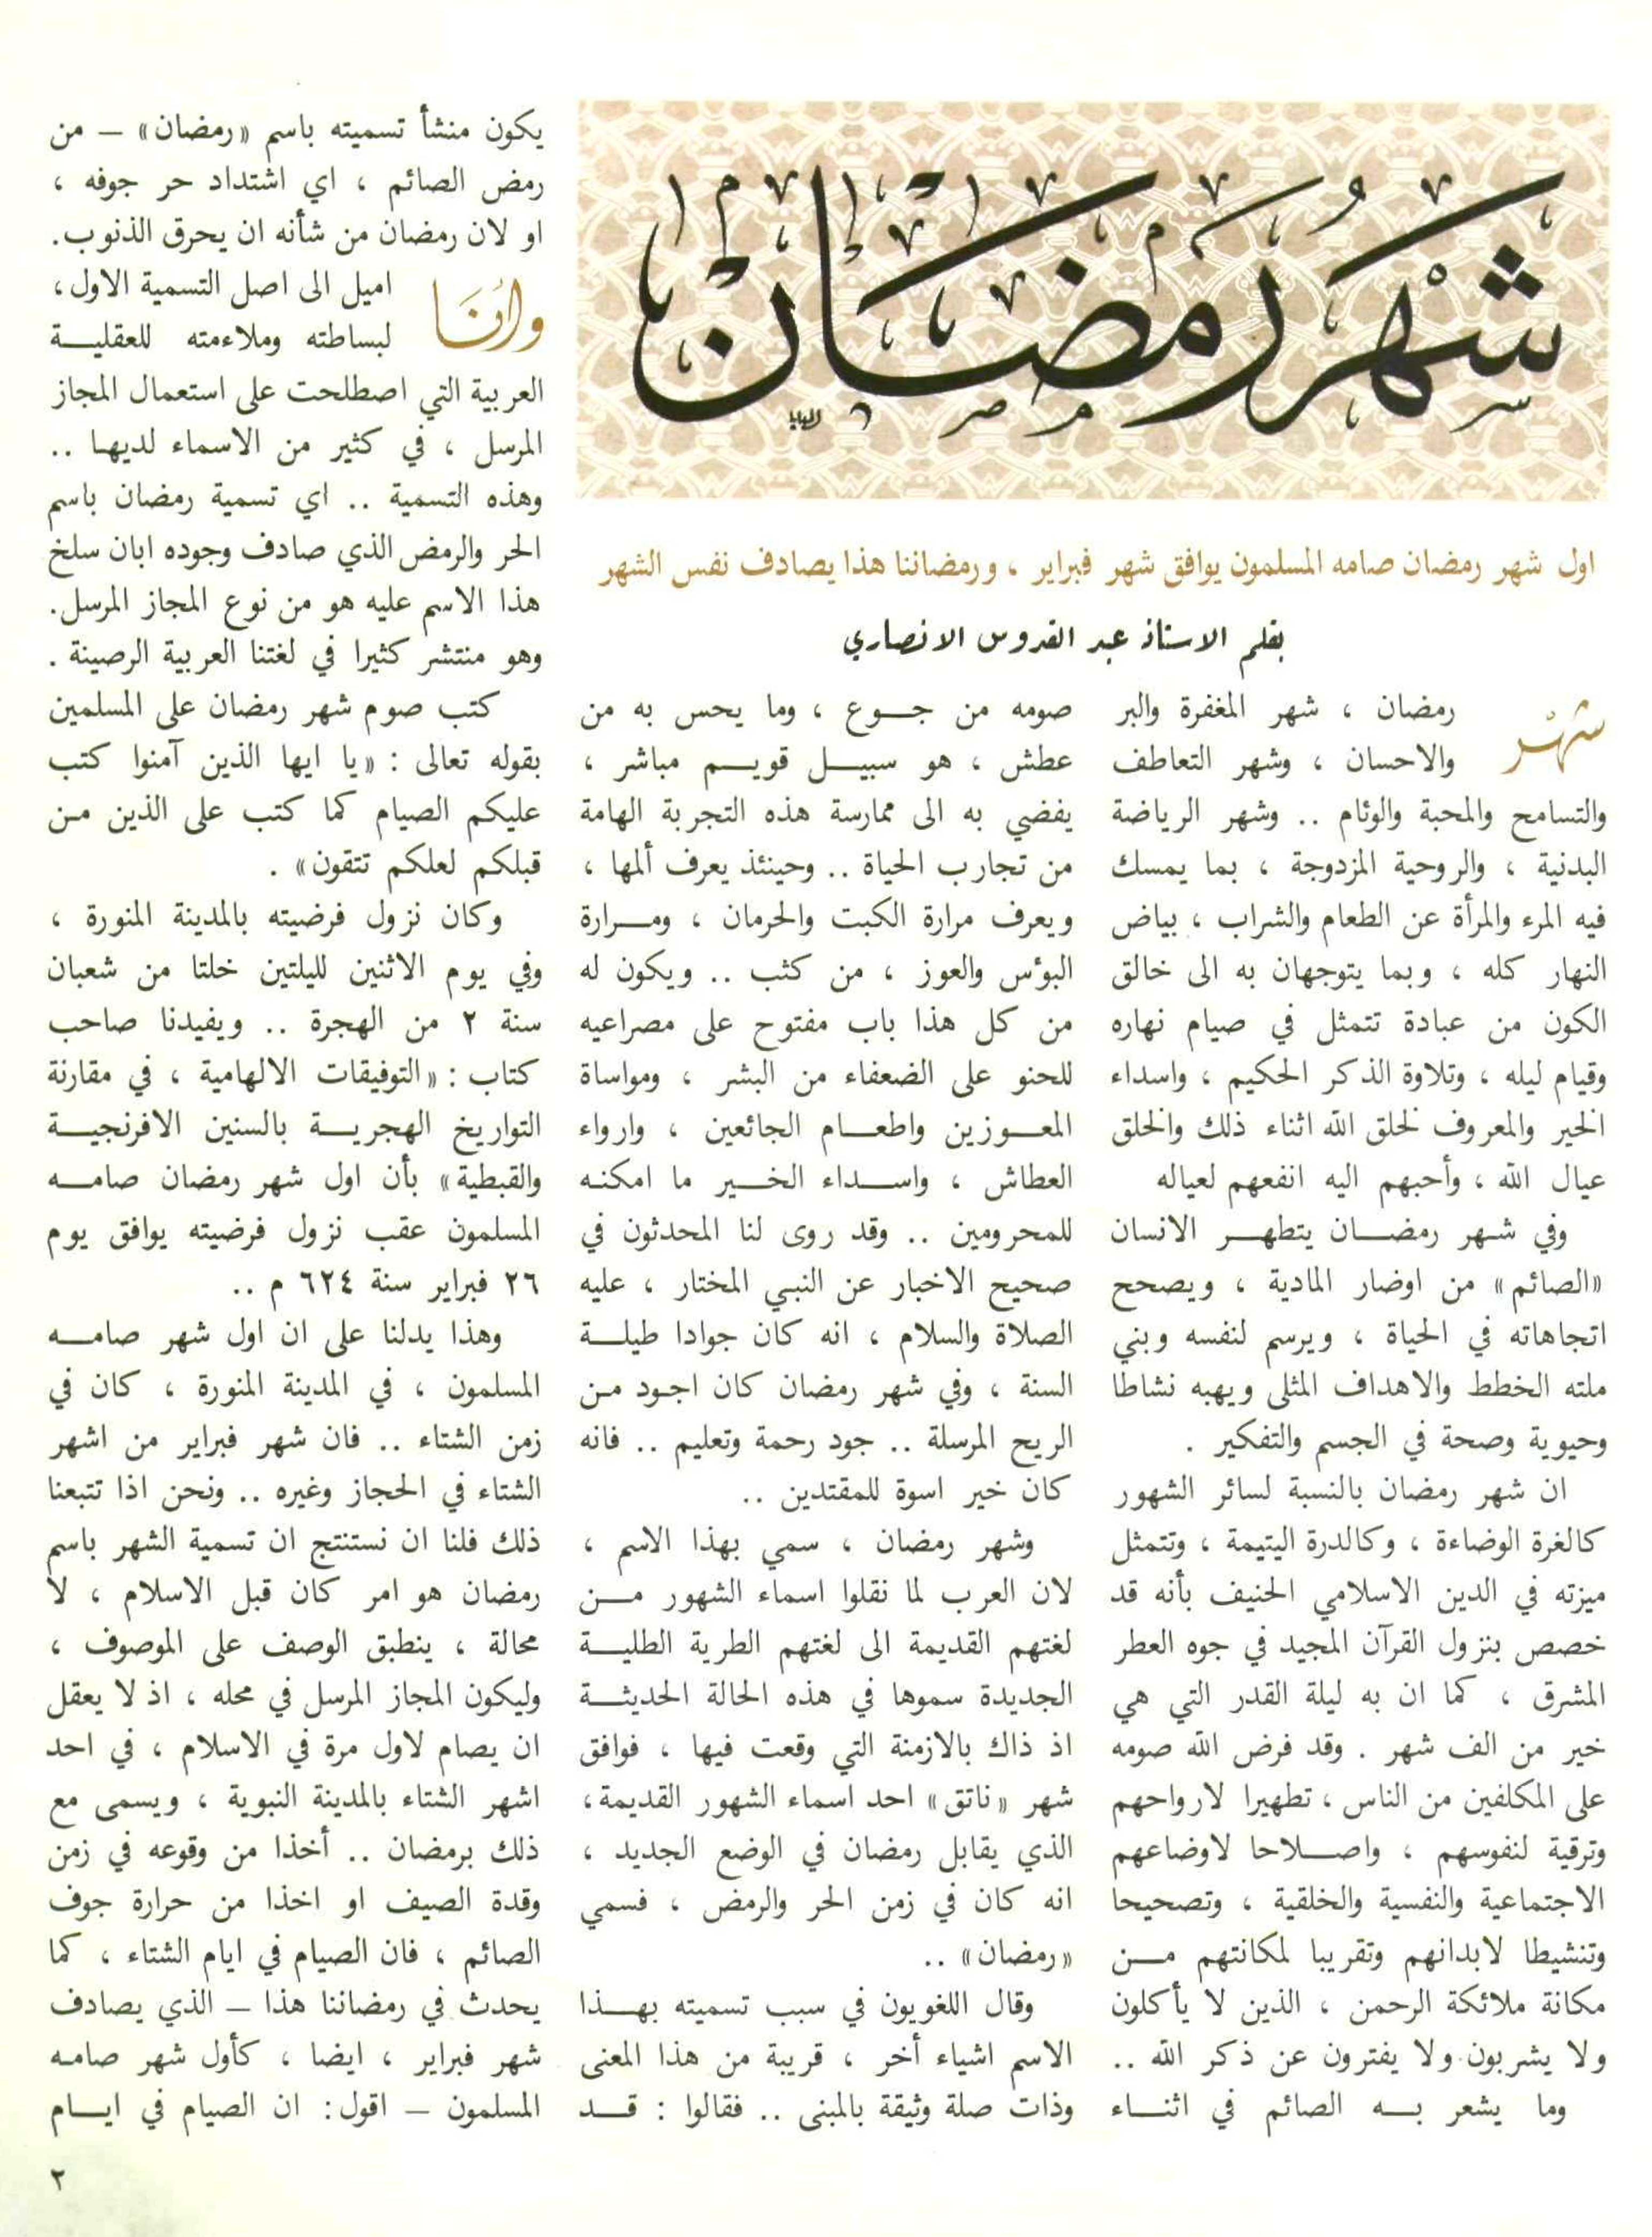 شَهْرُ رَمَضَان
اول شهر رمضان صامه المسلمون يوافق شهر فبراير ، ورمضاننا هذا يصادف نفس الشهر
بقلم الاستاذ عبد القدوس الانصاري
شَهْر رمضان ، شهر المغفرة والبر
والاحسان ، وشهر التعاطف
والتسامح والمحبة والوئام .. وشهر الرياضة
البدنية ، والروحية المزدوجة ، بما يمسك
فيه المرء والمرأة عن الطعام والشراب ، بياض
النهار كله ، وبما يتوجهان به الى خالق
الكون من عبادة تتمثل في صيام نهاره
وقيام ليله ، وتلاوة الذكر الحكيم ، واسداء
الخير والمعروف لخلق الله اثناء ذلك والخلق
عيال الله ، وأحبهم اليه انفعهم لعياله
وفي شهر رمضان يتطهر الانسان
«الصائم» من اوضار المادية ، ويصحح
اتجاهاته في الحياة ، ويرسم لنفسه وبني
ملته الخطط والاهداف المثلى ويهبه نشاطا
وحيوية وصحة في الجسم والتفكير .
ان شهر رمضان بالنسبة لسائر الشهور
كالغرة الوضاءة ، وكالدرة اليتيمة ، وتتمثل
ميزته في الدين الاسلامي الحنيف بأنه قد
خصص بنزول القرآن المجيد في جوه العطر
المشرق ، كما ان به ليلة القدر التي هي
خير من الف شهر . وقد فرض الله صومه
على المكلفين من الناس ، تطهيرا لارواحهم
وترقية لنفوسهم ، واصلاحا لاوضاعهم
الاجتماعية والنفسية والخلقية ، وتصحيحا
وتنشيطا لابدانهم وتقريبا لمكانتهم من
مكانة ملائكة الرحمن ، الذين لا يأكلون
ولا يشربون ولا يفترون عن ذكر الله ..
وما يشعر به الصائم في اثناء
صومه من جوع ، وما يحس به من
عطش ، هو سبيل قويم مباشر ،
يفضي به الى ممارسة هذه التجربة الهامة
من تجارب الحياة .. وحينئذ يعرف ألمها ،
ويعرف مرارة الكبت والحرمان ، ومرارة
البؤس والعوز ، من كثب .. ويكون له
من كل هذا باب مفتوح على مصراعيه
للحنو على الضعفاء من البشر ، ومواساة
المعوزين واطعام الجائعين ، وارواء
العطاش ، واسداء الخير ما امكنه
للمحرومين .. وقد روى لنا المحدثون في
صحيح الاخبار عن النبي المختار ، عليه
الصلاة والسلام ، انه كان جوادا طيلة
السنة ، وفي شهر رمضان كان اجود من
الريح المرسلة .. جود رحمة وتعليم .. فانه
كان خير اسوة للمقتدين ..
وشهر رمضان ، سمي بهذا الاسم ،
لان العرب لما نقلوا اسماء الشهور من
لغتهم القديمة الى لغتهم الطرية الطلية
الجديدة سموها في هذه الحالة الحديثة
اذ ذاك بالازمنة التي وقعت فيها ، فوافق
شهر «ناتق» احد اسماء الشهور القديمة ،
الذي يقابل رمضان في الوضع الجديد ،
انه كان في زمن الحر والرمض ، فسمي
«رمضان» ..
وقال اللغويون في سبب تسميته بهذا
الاسم اشياء أخر ، قريبة من هذا المعنى
وذات صلة وثيقة بالمبنى .. فقالوا : قد
يكون منشأ تسميته باسم «رمضان» – من
رمض الصائم ، اي اشتداد حر جوفه ،
او لان رمضان من شأنه ان يحرق الذنوب .
وأنَا اميل الى اصل التسمية الاول ،
لبساطته وملاءمته للعقلية
العربية التي اصطلحت على استعمال المجاز
المرسل ، في كثير من الاسماء لديها ..
وهذه التسمية .. اي تسمية رمضان باسم
الحر والرمض الذي صادف وجوده ابان سلخ
هذا الاسم عليه هو من نوع المجاز المرسل .
وهو منتشر كثيرا في لغتنا العربية الرصينة .
كتب صوم شهر رمضان على المسلمين
بقوله تعالى : «يا ايها الذين آمنوا كتب
عليكم الصيام كما كتب على الذين من
قبلكم لعلكم تتقون» .
وكان نزول فرضيته بالمدينة المنورة ،
وفي يوم الاثنين لليلتين خلتا من شعبان
سنة ٢ من الهجرة .. ويفيدنا صاحب
كتاب : «التوفيقات الالهامية ، في مقارنة
التواريخ الهجرية بالسنين الافرنجية
والقبطية» بأن اول شهر رمضان صامه
المسلمون عقب نزول فرضيته يوافق يوم
٢٦ فبراير سنة ٦٢٤ م ..
وهذا يدلنا على ان اول شهر صامه
المسلمون ، في المدينة المنورة ، كان في
زمن الشتاء .. فان شهر فبراير من اشهر
الشتاء في الحجاز وغيره .. ونحن اذا تتبعنا
ذلك فلنا ان نستنتج ان تسمية الشهر باسم
رمضان هو امر كان قبل الاسلام ، لا
محالة ، ينطبق الوصف على الموصوف ،
وليكون المجاز المرسل في محله ، اذ لا يعقل
ان يصام لاول مرة في الاسلام ، في احد
اشهر الشتاء بالمدينة النبوية ، ويسمى مع
ذلك برمضان .. أخذا من وقوعه في زمن
وقدة الصيف او اخذا من حرارة جوف
الصائم ، فان الصيام في ايام الشتاء ، كما
يحدث في رمضاننا هذا – الذي يصادف
شهر فبراير ، ايضا ، كأول شهر صامه
المسلمون – اقول : ان الصيام في ايام
٢